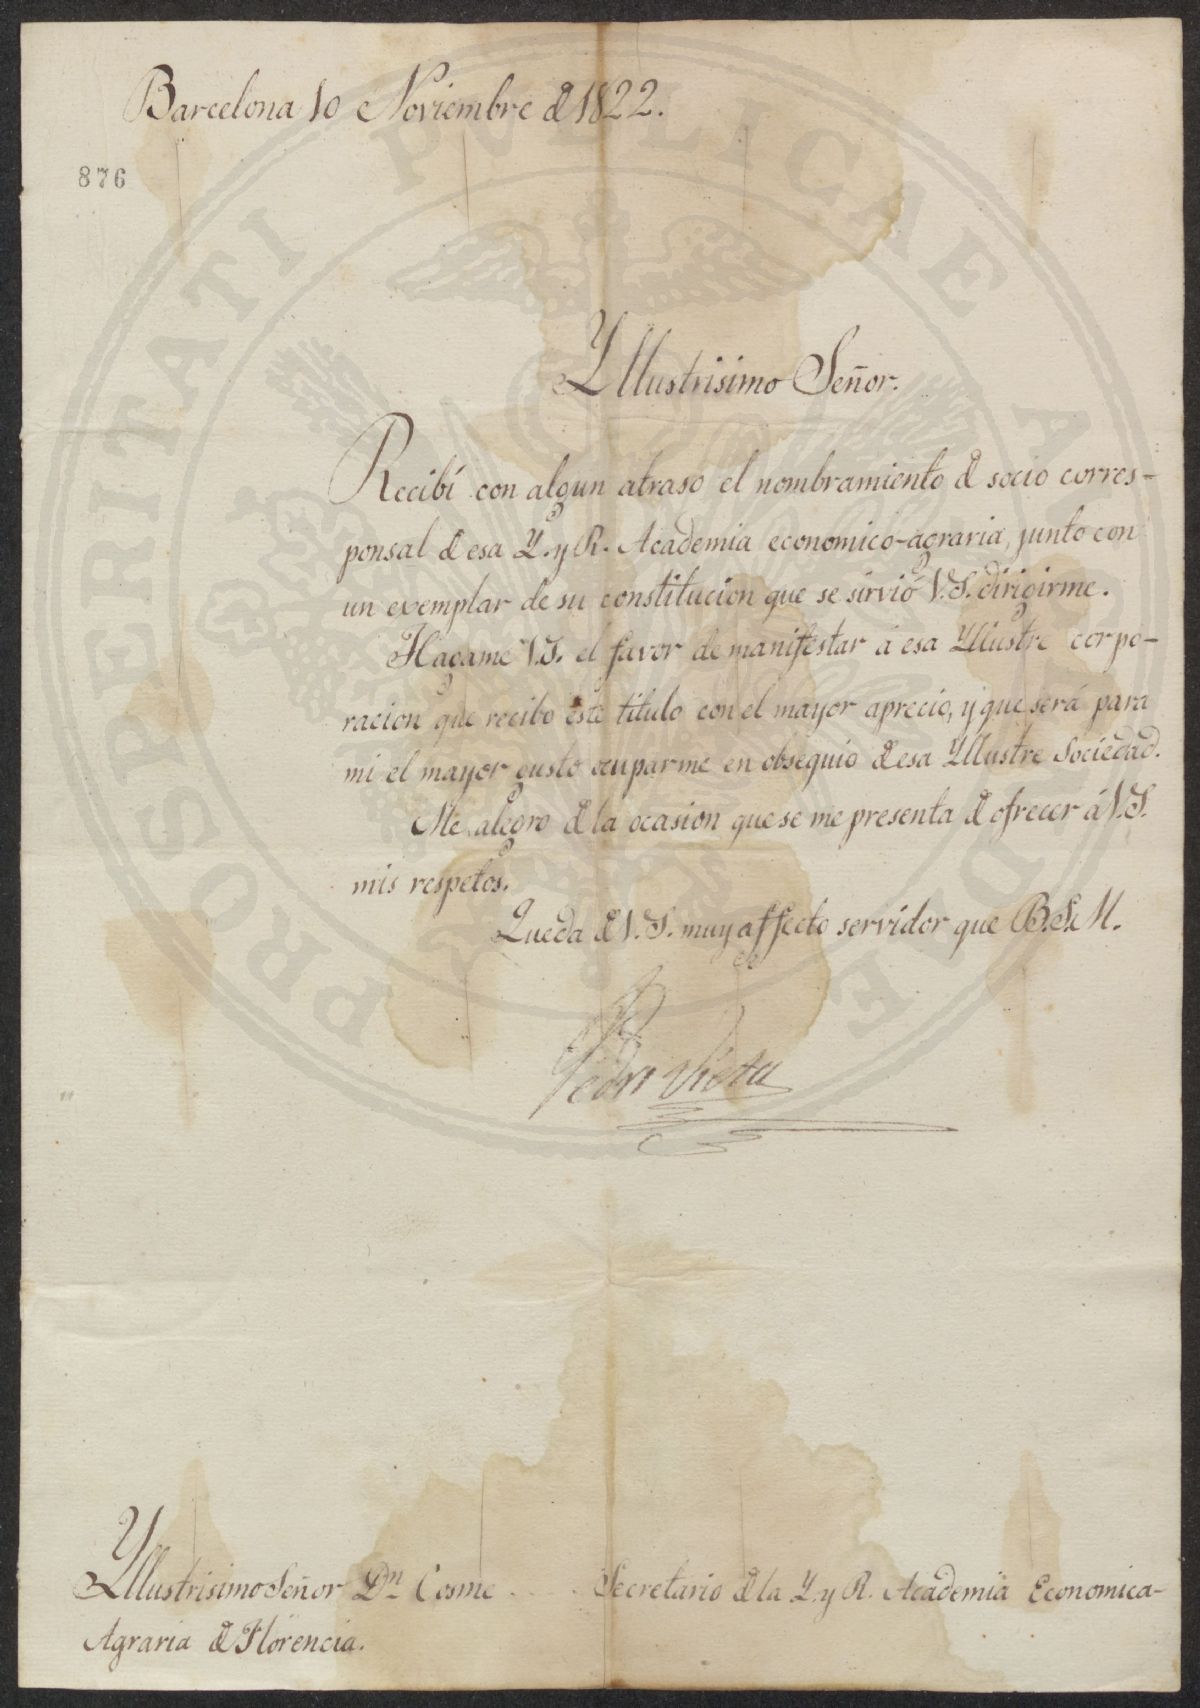 Barcelona 10 Noviembre d 1822.
876
Yllustrisimo Señor.
Recibí con algun atraso el nombramiento d socio corres-
ponsal d esa Y. y R. Academia economico-agraria, junto con
un exemplar de su constitucion que se sirvió V.S. dirigirme.
Hagame V.S. el favor de manifestar á esa Yllustre corpo-
racion que recibo este titulo con el mayor aprecio, y que será para
mi el mayor gusto ocuparme en obsequio d esa Yllustre Sociedad.
Me alegro d la ocasion que se me presenta d ofrecer á V.S.
mis respetos.
Queda d V.S. muy affecto servidor que B.S.M.
Pedro Vieta
Yllustrisimo Señor Dn Cosme . . Secretario d la Y. y R. Academia Economica-
Agraria d Florencia.
PROSPERITATI PVBLICAE AVGENDAE